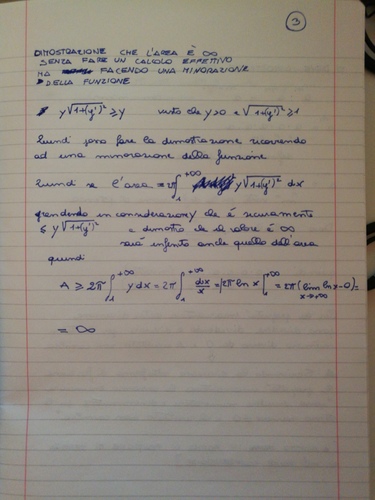 3
DIMOSTRAZIONE CHE L'AREA È ∞
SENZA FARE UN CALCOLO EFFETTIVO
MA FACENDO UNA MINORAZIONE
DELLA FUNZIONE
y√1+(y')² ≥ y visto che y>0 e √1+(y')² ≥ 1
Quindi posso fare la dimostrazione ricorrendo
ad una minorazione della funzione
Quindi se l'area = 2π ∫₁^+∞ y√1+(y')² dx
prendendo in considerazione y che è sicuramente
≤ y√1+(y')² e dimostro che il valore è ∞
sarà infinito anche quello dell'area
quindi
A ≥ 2π ∫₁^+∞ y dx = 2π ∫₁^+∞ dx/x = |2π ln x|₁^+∞ = 2π (lim x→+∞ ln x - 0) =
= ∞